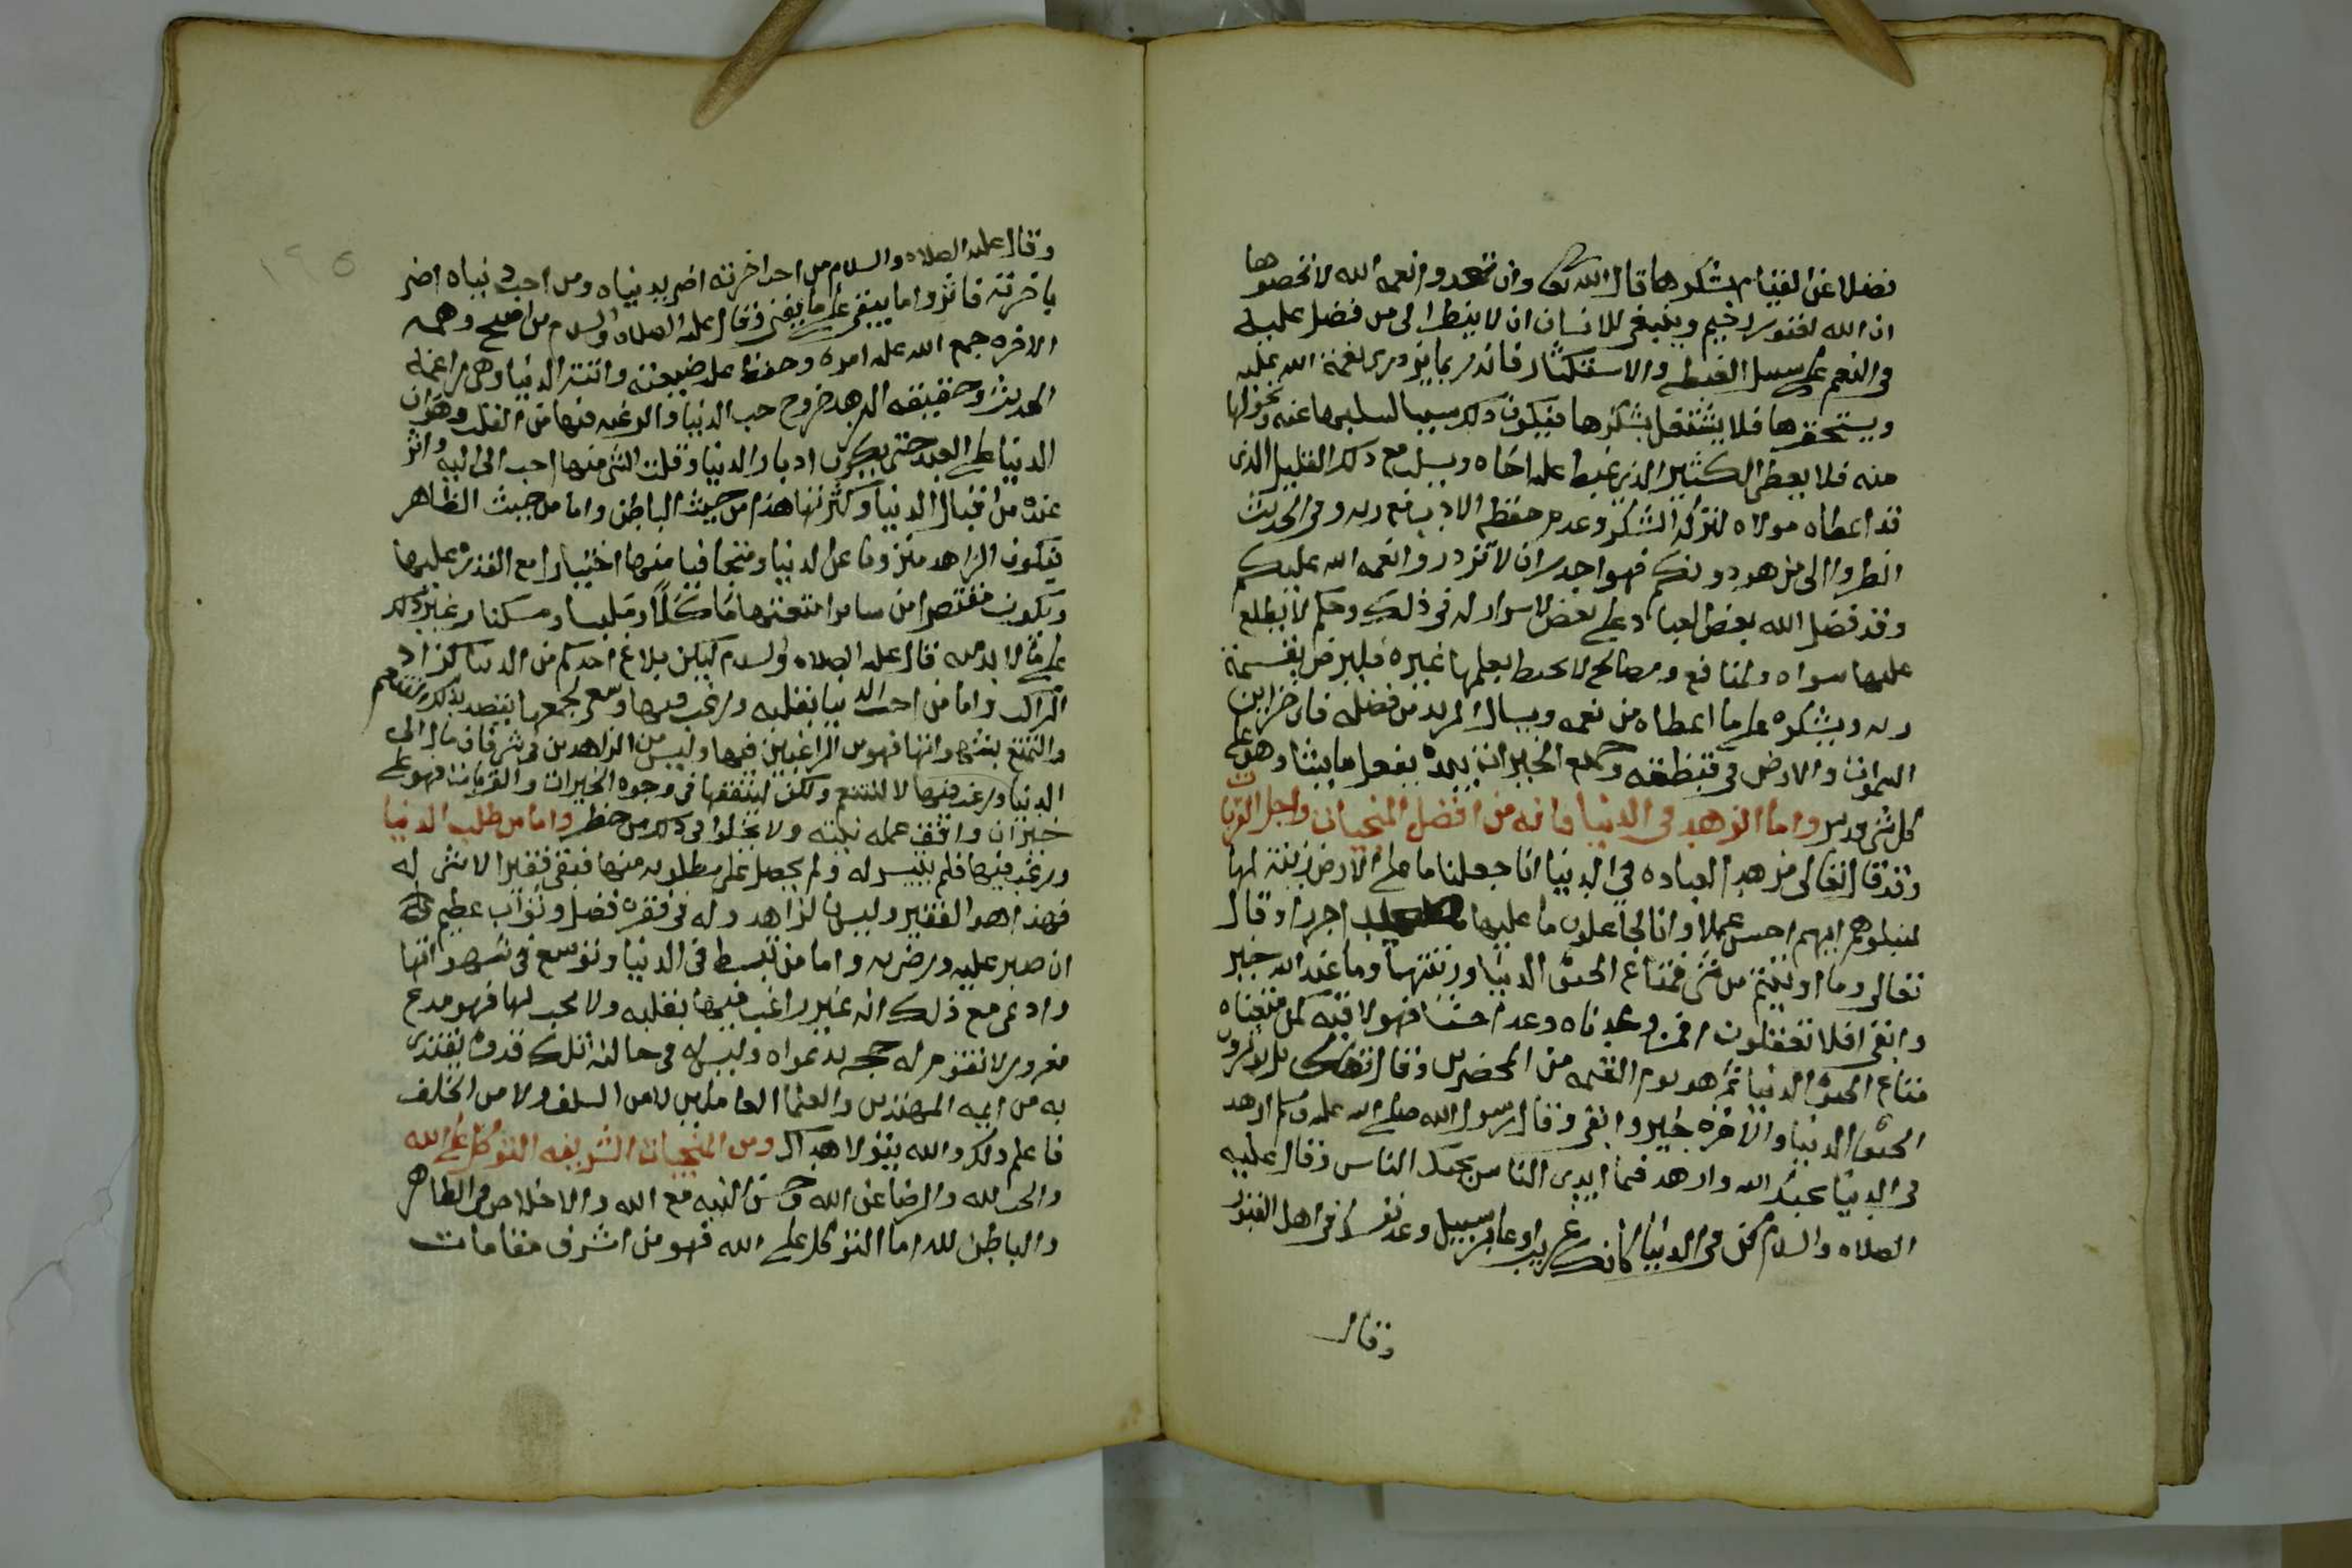 فضلا عن القيام بشكرها قال الله تعالى وان تعدوا نعمه الله لا تحصوها
ان الله لغفور رحيم وينبغي للانسان ان لا ينظر الى من فضل عليه
في النعم على سبيل الغبطه والاستكثار فانه ربما يزدري نعمة الله عليه
ويستحقرها فلا يشتغل بشكرها فيكون ذلك سببا لسلبها عنه وتحولها
منه فلا يعطى الكثير الذي غبط عليه اخاه ويسلب مع ذلك القليل الذي
قد اعطاه مولاه لتركه الشكر وعدم حفظه الادب مع ربه وفي الحديث
انظروا الى من هو دونكم فهو اجدر ان لا تزدروا نعمه الله عليكم
وقد فضل الله بعض العباد على بعض لاسرار له في ذلك وحكم لا يطلع
عليها سواه ولمنافع ومصالح لا يحيط بعلمها غيره فليرض بقسمة
ربه ويشكره على ما اعطاه من نعمه ويسال المزيد من فضله فان خزاين
السموات والارض في قبضته وجميع الخيرات بيده يفعل ما يشا وهو على
كل شي قدير واما الزهد في الدنيا فانه من افضل المنجيات واجل القربات
وقد قال تعالى مزهد العباده في الدنيا انا جعلنا ما على الارض زينة لها
لنبلوهم ايهم احسن عملا وانا لجاعلون ما عليها صعيدا جرزا وقال
تعالى وما اوتيتم من شي فمتاع الحيوة الدنيا وزينتها وما عند الله خير
وابقى افلا تعقلون افمن وعدناه وعدا حسنا فهو لاقيه كمن متعناه
متاع الحيوة الدنيا ثم هو يوم القيمه من المحضرين وقال تعالى بل توثرون
الحيوة الدنيا والاخره خير وابقى وقال رسول الله صلى الله عليه وسلم ازهد
في الدنيا يحبك الله وازهد فيما ايدي الناس يحبك الناس وقال عليه
الصلاه والسلام كن في الدنيا كانك غريب او عابر سبيل وعد نفسك في اهل القبور
وقال
١٩٥
وقال عليه الصلاه والسلام من احب اخرته اضر بدنياه ومن احب دنياه اضر
باخرته فاثروا ما يبقى على ما يفنى وقال عليه الصلاه والسلام من اصبح وهمه
الاخره جمع الله عليه امره وحفظ عليه ضيعته واتته الدنيا وهي راغمة
الحديث وحقيقه الزهد خروج حب الدنيا والرغبه فيها من القلب وهوان
الدنيا على العبد حتى يكون ادبار الدنيا وقلت الشي منها احب اليه واثر
عنده من اقبال الدنيا وكثرتها هذا من حيث الباطن واما من حيث الظاهر
فيكون الزاهد منزويا عن الدنيا ومتجافيا منها اختيارا مع القدره عليها
ويكون مقتصرا من ساير امتعتها ماكلا وملبسا ومسكنا وغير ذلك
على ما لا بد منه قال عليه الصلاه والسلام ليكن بلاغ احدكم من الدنيا كزاد
الراكب واما من احب الدنيا بقلبه ورغب فيها وسعى لجمعها بقصد بذلك التنعم
والتمتع بشهواتها فهو من الراغبين فيها وليس من الزاهدين في شي فان مال الى
الدنيا ورغب فيها لا للتنعم ولكن لينفقها في وجوه الخيرات والقربات فهو على
خير ان وافق عمله نيته ولا يخلوا في ذلك من خطر واما من طلب الدنيا
ورغب فيها فلم يتيسر له ولم يحصل على مطلوبه منها فبقى فقيرا لا شي له
فهذا هو الفقير وليس الزاهد وله في فقره فضل وثواب عظيم
ان صبر عليه ورضي به واما من تبسط في الدنيا وتوسع في شهواتها
وادعى مع ذلك انه غير راغب فيها بقلبه ولا محب لها فهو مدع
مغرور لا تقوم له حجه بدعواه وليس له في حالته تلك قدوه يقتدى
به من ايمه المهتدين والعلما العاملين لا من السلف ولا من الخلف
فاعلم ذلك والله يتولا هداك ومن المنجيات الشريفه التوكل على الله
والحب لله والرضا عن الله وحسن النيه مع الله والاخلاص في الظاهر
والباطن لله اما التوكل على الله فهو من اشرف مقامات